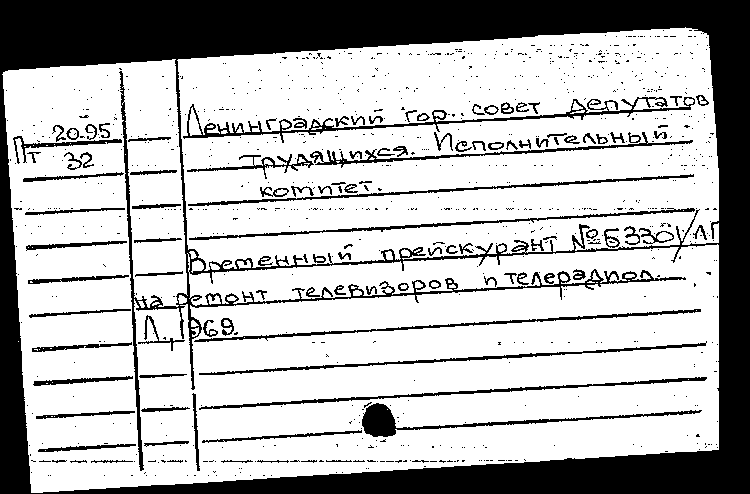 Пт 20.95
32
Ленинградский гор. совет депутатов
трудящихся. Исполнительный
комитет.
Временный прейскурант №Б3301/ЛГ
на ремонт телевизоров и телерадиол.
Л., 1969.